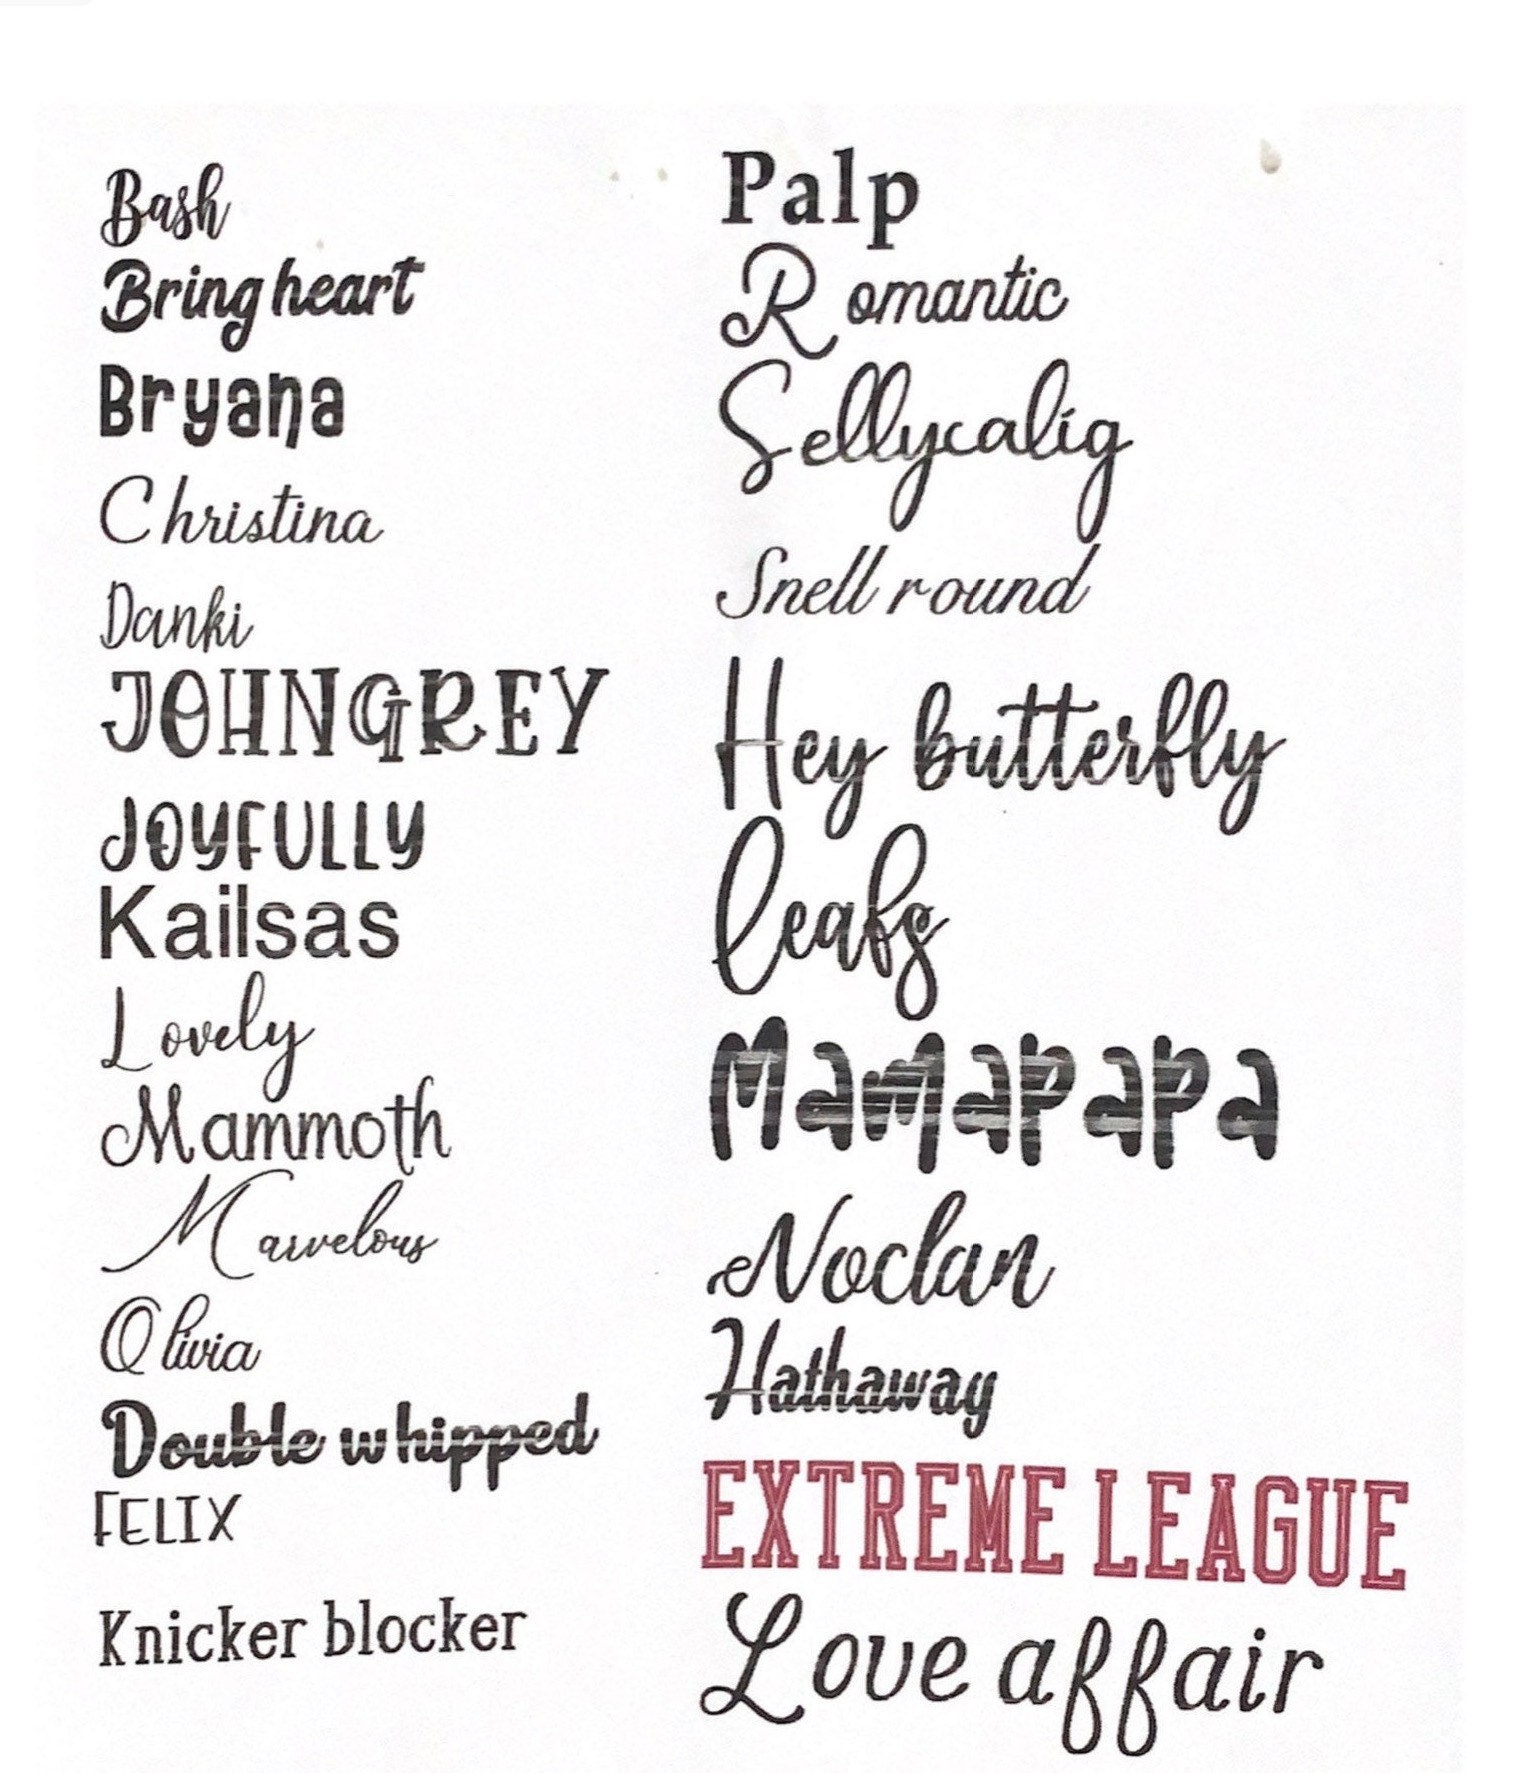 Bash
Bring heart
Bryana
Christina
Danki
JOHNGREY
JOYFULLY
Kailsas
Lovely
Mammoth
Marvelous
Olivia
Double whipped
FELIX
Knicker blocker
Palp
Romantic
Sellycalig
Snell round
Hey butterfly
leafs
Mamapapa
Noclan
Hathaway
EXTREME LEAGUE
Love affair